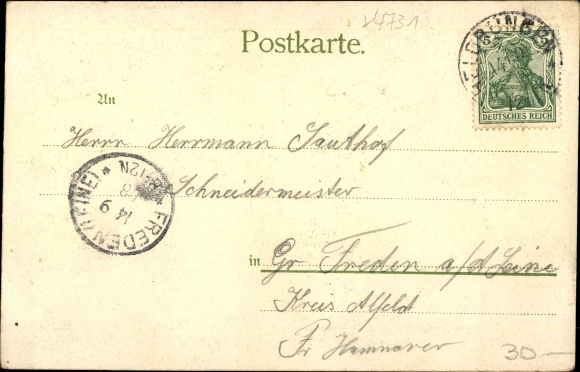 v4731
Postkarte.
5
DEUTSCHES REICH
An
Herrn Herrmann Sauthof
Schneidermeister
FREDEN (LEINE)
14 9
8-12N
in Gr Freden a/d Leine
Kreis Alfeld
Pr Hannover
30-